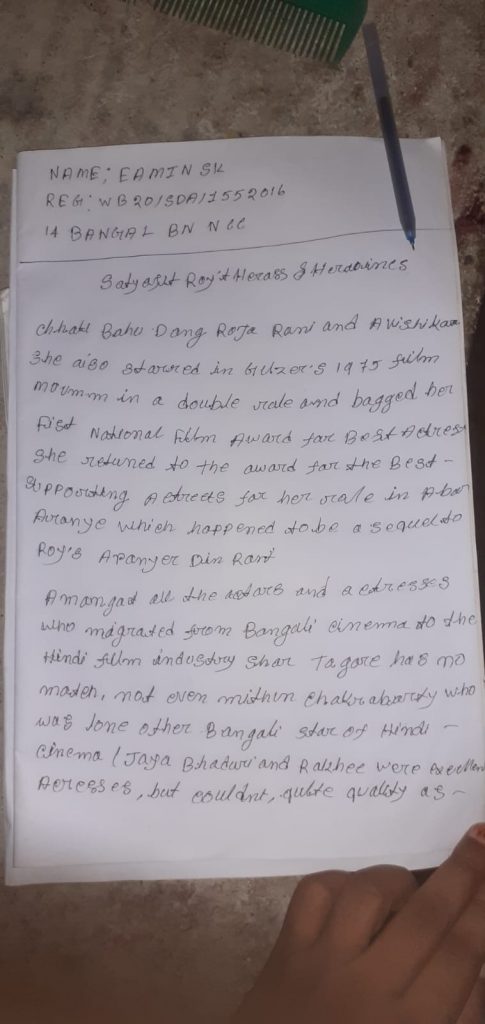 NAME; EAMIN SK
REG: WB20/SDA/1552016
14 BANGAL BN NCC
Satyasit Roy's Herass & Heraoines
Chhakl Bahu Dang Roja Rani and Avishikaa
She aiso starred in Gulzer's 1975 film
moummm in a double rale and bagged her
fist National Film Award far Best Actress
She retuned to the award far the Best -
Supporting Actreets far her rale in Abar
Aranye which happened to be a sequel to
Roy's Aranyer Din Rani
Amamgat all the actars and actresses
who migrated from Bangali cinema to the
Hindi film industry Shar Tagore has no
match, not even mithin Chakrabarty who
was lone other Bangali star of Hindi -
cinema (Jaya Bhaduri and Rakhee were excellen
Acresses, but couldnt, quite qualify as -